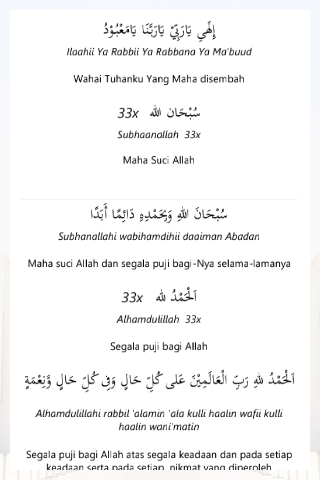 إِلٰهِي يَارَبِّيْ يَارَبَّنَا يَامَعْبُوْدُ
Ilaahii Ya Rabbii Ya Rabbana Ya Ma'buud
Wahai Tuhanku Yang Maha disembah
سُبْحَان الله 33x
Subhaanallah 33x
Maha Suci Allah
سُبْحَانَ اللهِ وَبِحَمْدِهِ دَائِمًا أَبَدًا
Subhanallahi wabihamdihii daaiman Abadan
Maha suci Allah dan segala puji bagi-Nya selama-lamanya
اَلْحَمْدُ لله 33x
Alhamdulillah 33x
Segala puji bagi Allah
اَلْحَمْدُ للهِ رَبِّ الْعَالَمِيْنَ عَلى كُلِّ حَالٍ وَفِى كُلِّ حَالٍ وَّنِعْمَةٍ
Alhamdulillahi rabbil 'alamin 'ala kulli haalin wafii kulli
haalin wani'matin
Segala puji bagi Allah atas segala keadaan dan pada setiap
keadaan serta pada setiap nikmat yang diperoleh